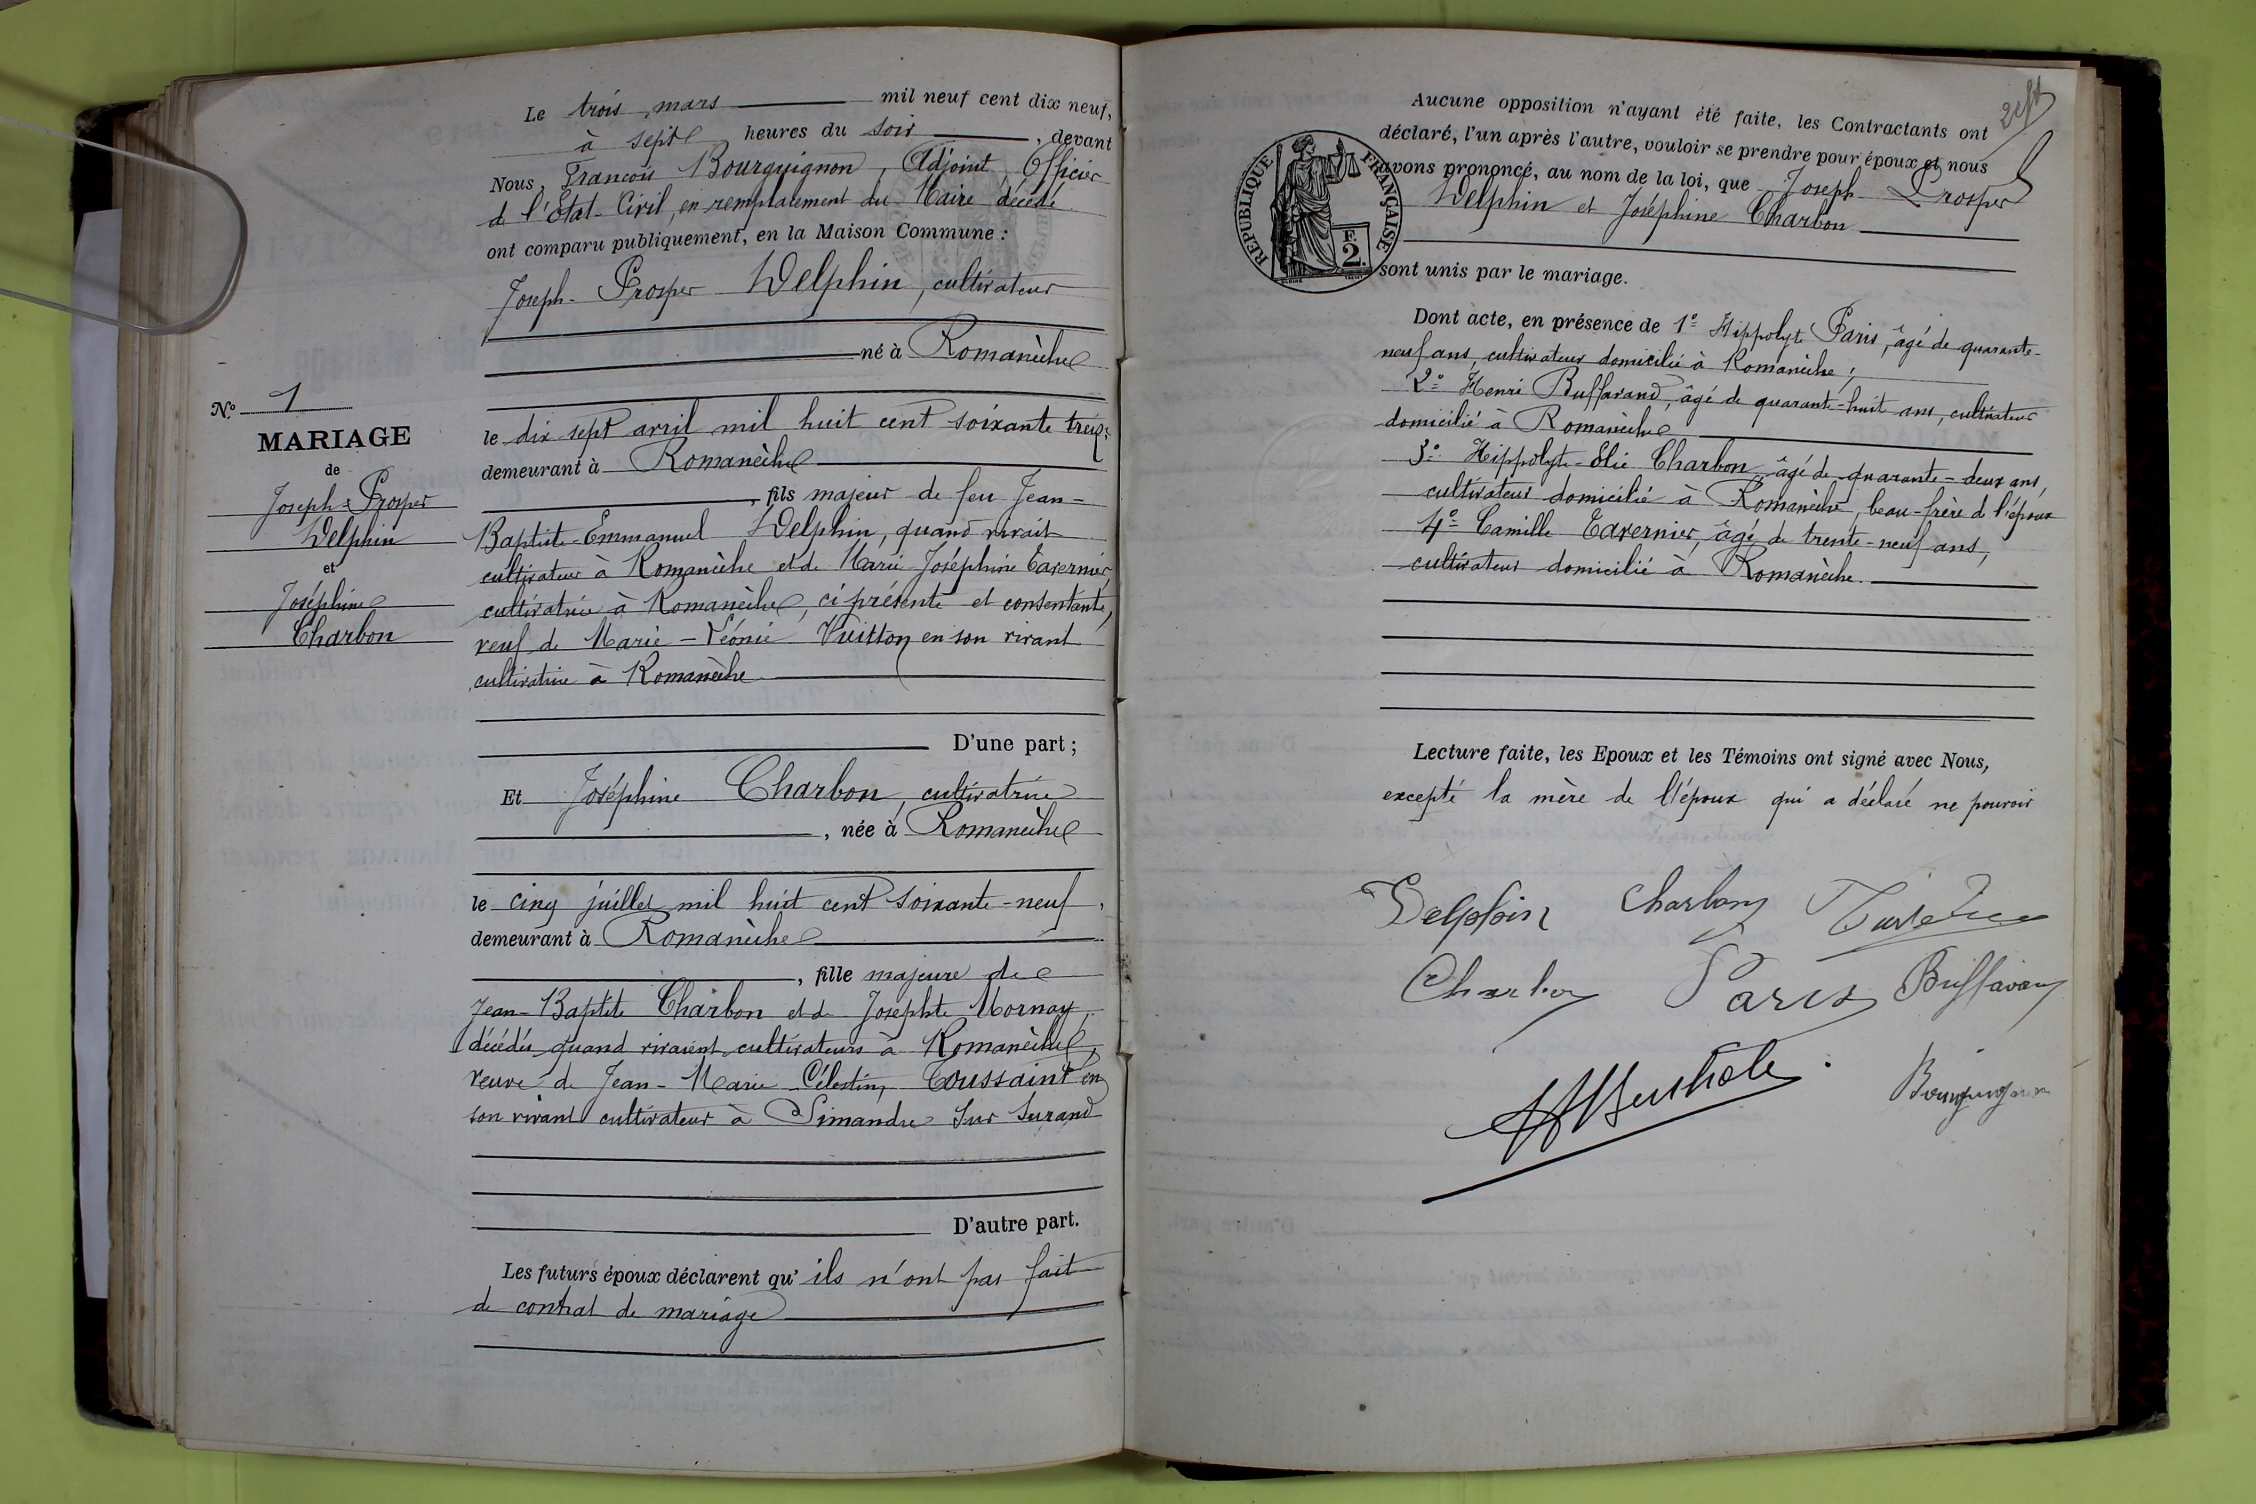 Le trois mars mil neuf cent dix neuf,
à sept heures du soir, devant
Nous, François Bourguignon, Adjoint Officier
de l'Etat-Civil, en remplacement du Maire décédé
ont comparu publiquement, en la Maison Commune :
Joseph-Prosper Delphin, cultivateur
né à Romanèche
N° 1
MARIAGE
de
Joseph-Prosper
Delphin
et
Joséphine
Charbon
le dix sept avril mil huit cent soixante treize
demeurant à Romanèche
, fils majeur de feu Jean-
Baptiste-Emmanuel Delphin, quand vivait
cultivateur à Romanèche et de Marie-Joséphine Tavernier,
cultivatrice à Romanèche, ci présente et consentante,
veuf de Marie-Léonie Vuitton en son vivant
cultivatrice à Romanèche
D'une part ;
Et Joséphine Charbon, cultivatrice
, née à Romanèche
le cinq juillet mil huit cent soixante-neuf,
demeurant à Romanèche
, fille majeure de
Jean-Baptiste Charbon et de Josephte Mornay,
décédés quand vivaient cultivateurs à Romanèche,
veuve de Jean-Marie Célestin Toussaint en
son vivant cultivateur à Simandre sur Surand
D'autre part.
Les futurs époux déclarent qu'ils n'ont pas fait
de contrat de mariage
Aucune opposition n'ayant été faite, les Contractants ont
déclaré, l'un après l'autre, vouloir se prendre pour époux et nous
avons prononcé, au nom de la loi, que Joseph-Prosper
Delphin et Joséphine Charbon
REPUBLIQUE FRANÇAISE
F. 2.
sont unis par le mariage.
Dont acte, en présence de 1° Hippolyte Paris, âgé de quarante-
neuf ans, cultivateur domicilié à Romanèche ;
2° Henri Buffavand, âgé de quarante-huit ans, cultivateur
domicilié à Romanèche
3° Hippolyte-Elie Charbon, âgé de quarante-deux ans,
cultivateur domicilié à Romanèche, beau-frère de l'époux
4° Camille Tavernier, âgé de trente-neuf ans,
cultivateur domicilié à Romanèche.
Lecture faite, les Epoux et les Témoins ont signé avec Nous,
excepté la mère de l'époux qui a déclaré ne pouvoir
Delphin Charbon
Charbon Paris Buffavand
Bourguignon